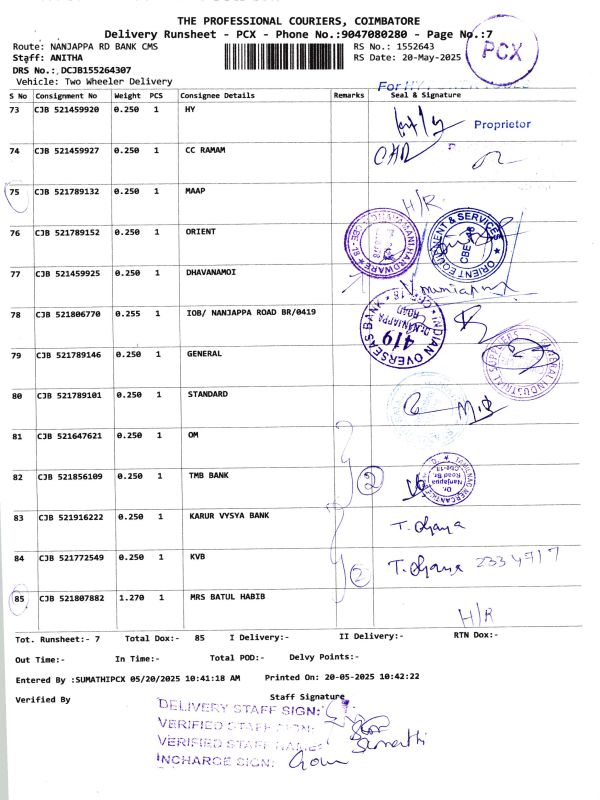 THE PROFESSIONAL COURIERS, COIMBATORE
Delivery Runsheet - PCX - Phone No.:9047080280 - Page No.:7
Route: NANJAPPA RD BANK CMS
RS No.: 1552643
Staff: ANITHA
RS Date: 20-May-2025
DRS No.:.DCJB155264307
Vehicle: Two Wheeler Delivery
PCX
S No Consignment No Weight PCS Consignee Details Remarks Seal & Signature
73 CJB 521459920 0.250 1 HY
Proprietor
74 CJB 521459927 0.250 1 CC RAMAM
75 CJB 521789132 0.250 1 MAAP
H/R
76 CJB 521789152 0.250 1 ORIENT
ORIENT EQUIPMENT & SERVICES
77 CJB 521459925 0.250 1 DHAVANAMOI
78 CJB 521806770 0.255 1 IOB/ NANJAPPA ROAD BR/0419
INDIAN OVERSEAS BANK
419
NANJAPPA
ROAD
79 CJB 521789146 0.250 1 GENERAL
80 CJB 521789101 0.250 1 STANDARD
81 CJB 521647621 0.250 1 OM
82 CJB 521856109 0.250 1 TMB BANK
2
Dr.
Nanjappa
Road Br.
83 CJB 521916222 0.250 1 KARUR VYSYA BANK
84 CJB 521772549 0.250 1 KVB
2
85 CJB 521807882 1.270 1 MRS BATUL HABIB
H/R
Tot. Runsheet:- 7 Total Dox:- 85 I Delivery:- II Delivery:- RTN Dox:-
Out Time:- In Time:- Total POD:- Delvy Points:-
Entered By :SUMATHIPCX 05/20/2025 10:41:18 AM Printed On: 20-05-2025 10:42:22
Verified By Staff Signature
DELIVERY STAFF SIGN:
VERIFIED STAFF SIGN:
VERIFIED STAFF NAME: Sumathi
INCHARGE SIGN: